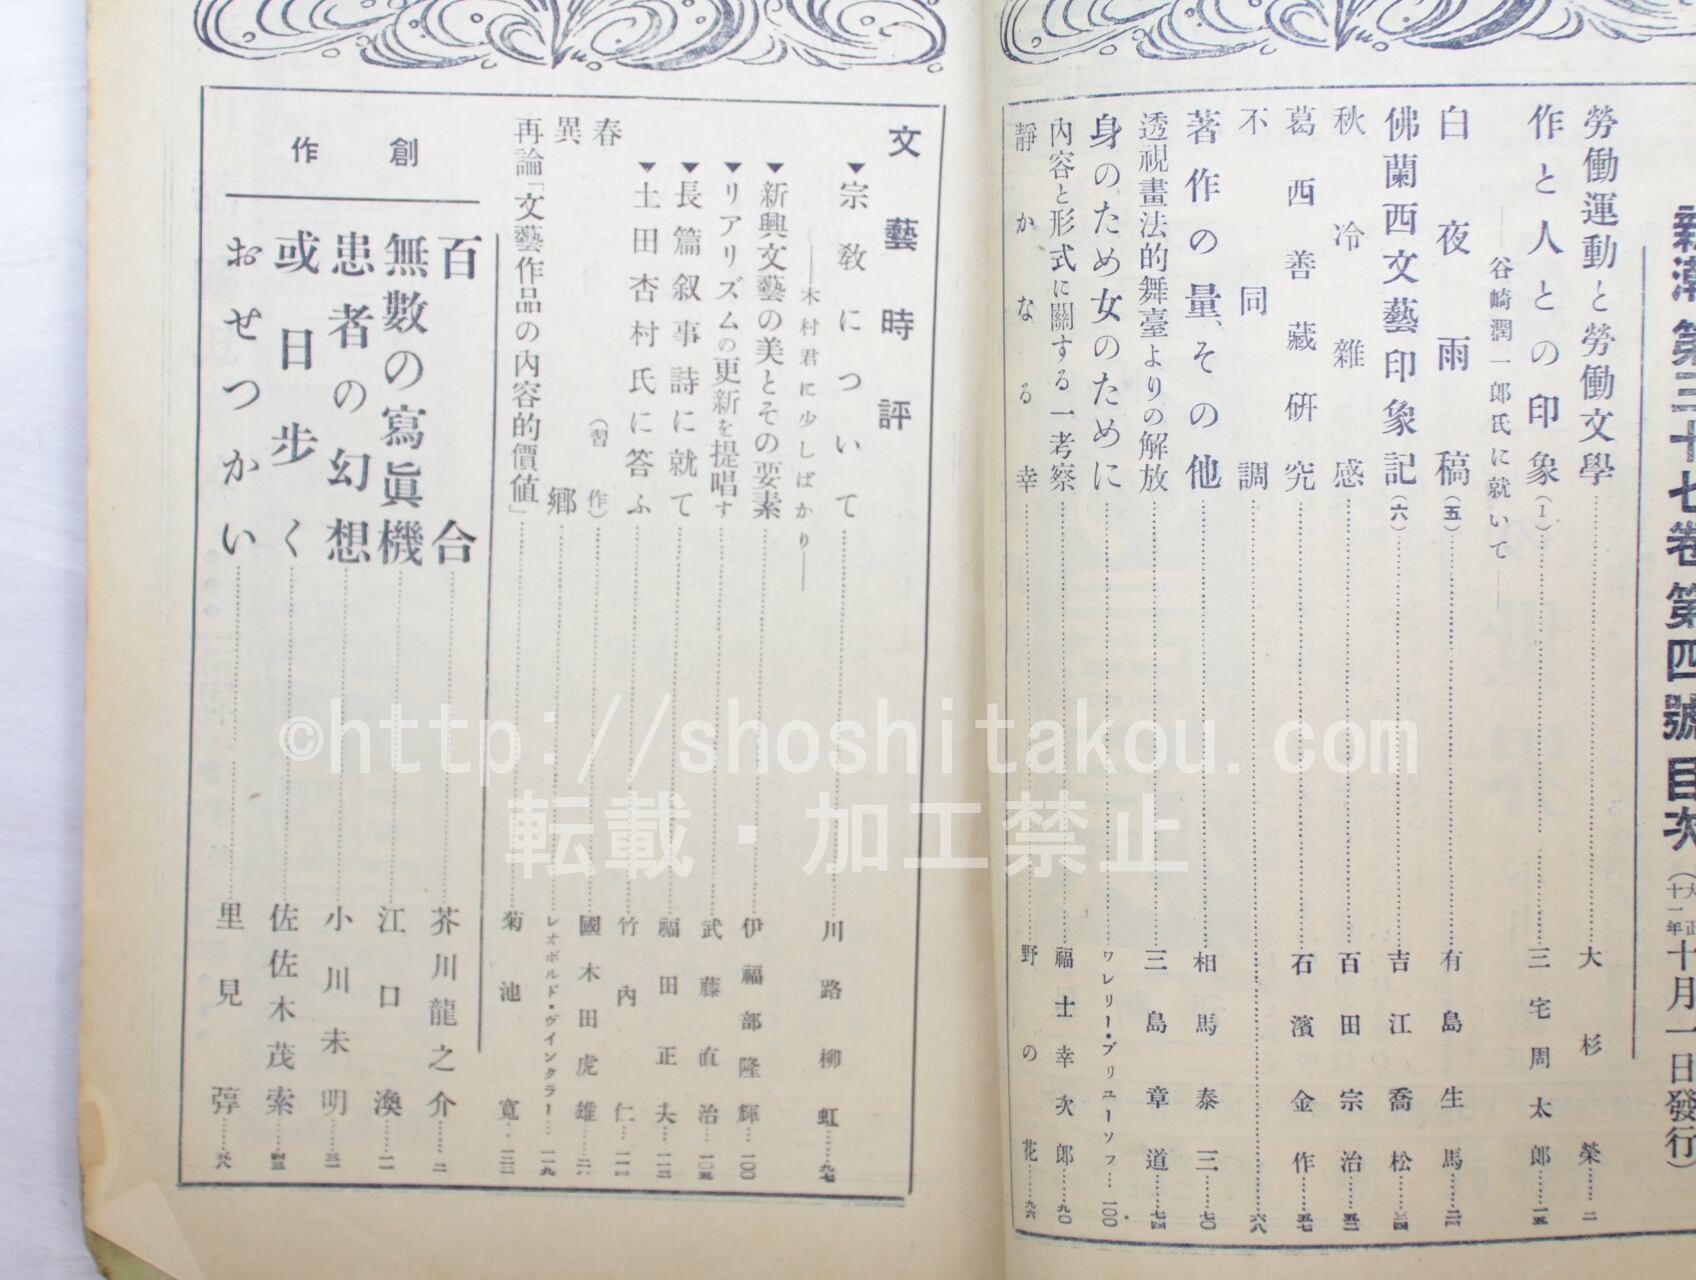 新潮 第三十七卷 第四號 目次 (大正十一年十月一日發行)
勞働運動と勞働文學 大杉榮 二
作と人との印象(1) 三宅周太郎 一五
――谷崎潤一郎氏に就いて――
白夜雨稿(五) 有島生馬 二四
佛蘭西文藝印象記(六) 吉江喬松 三四
秋冷雜感 百田宗治 五二
葛西善藏研究 石濱金作 五七
不同調 六八
著作の量、その他 相馬泰三 七〇
透視畫法的舞臺よりの解放 三島章道 七四
身のため女のために ワレリー・ブリユーソフ 一〇〇
内容と形式に關する一考察 福士幸次郎 九〇
靜かなる幸 野の花 九六
文藝時評
▼宗教について 川路柳虹 九七
――木村君に少しばかり――
▼新興文藝の美とその要素 伊福部隆輝 一〇〇
▼リアリズムの更新を提唱す 武藤直治 一〇五
▼長篇叙事詩に就て 福田正夫 一一二
▼土田杏村氏に答ふ 竹内仁
春(習作) 國木田虎雄
異鄉 レオポルド・ヴインクラー 一一九
再論「文藝作品の内容的價値」 菊池寬 一二二
創作
百合 芥川龍之介 二
無數の寫眞機 江口渙 一一
患者の幻想 小川未明 三一
或日步く 佐佐木茂索 四三
おせつかい 里見弴 五八
©http://shoshitakou.com
転載・加工禁止